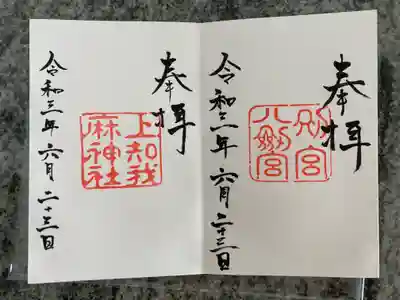 奉拝
別宮
八剣宮
令和三年六月二十三日
奉拝
上知我
麻神社
令和三年六月二十三日